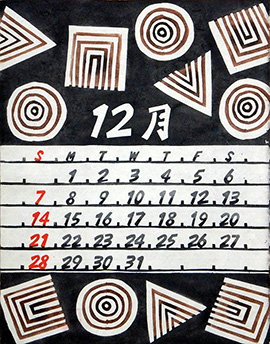 12月
S. M. T. W. T. F. S.
1 2 3 4 5 6
7 8 9 10 11 12 13
14 15 16 17 18 19 20
21 22 23 24 25 26 27
28 29 30 31